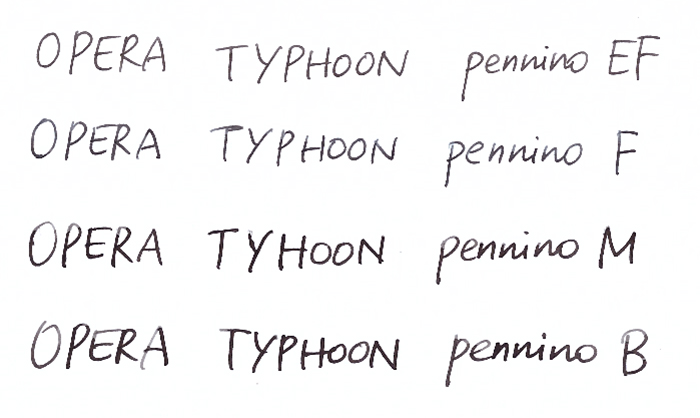 OPERA TYPHOON pennino EF
OPERA TYPHOON pennino F
OPERA TYHOON pennino M
OPERA TYPHOON pennino B